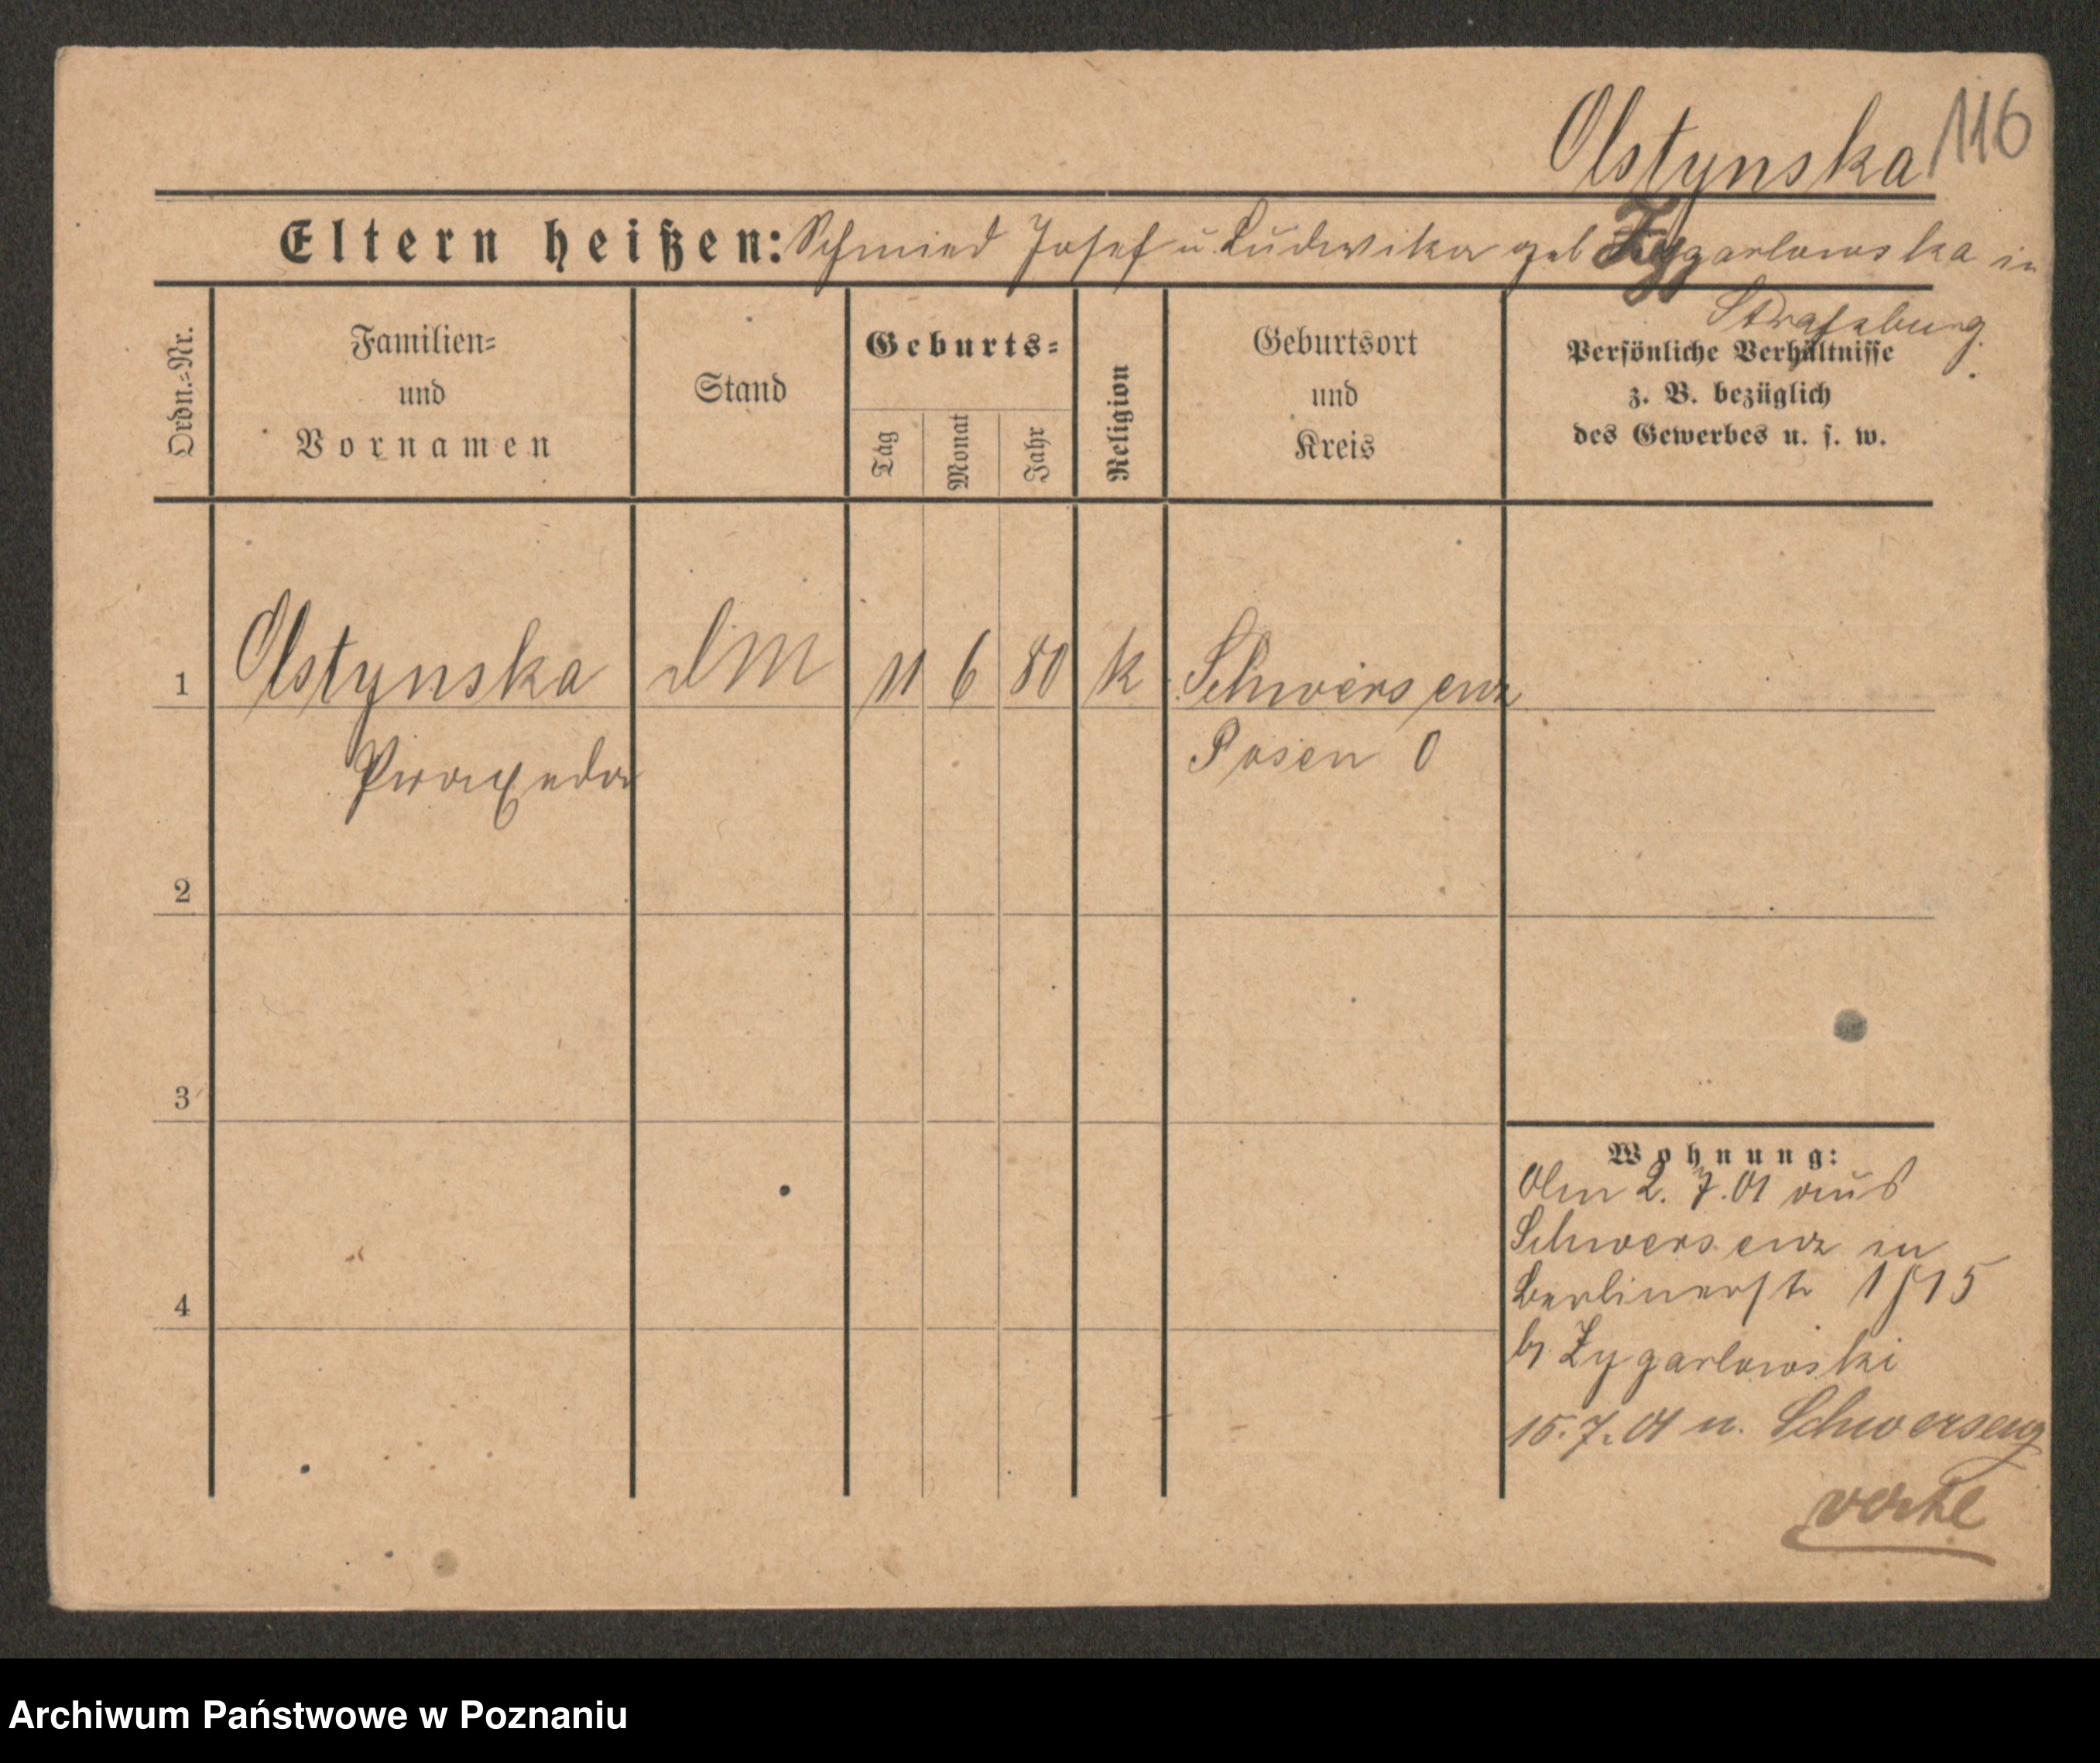 Olstynska 116
Eltern heißen: Schmied Josef u Ludwika geb Zygarlowska in
Strassburg.
Ordn.-Nr.
Familien-
und
Vornamen
Stand
Geburts-
Tag
Monat
Jahr
Religion
Geburtsort
und
Kreis
Persönliche Verhältnisse
z. B. bezüglich
des Gewerbes u. s. w.
1 Olstynska 11 6 80 k Schwersenz
Praxeda Posen O
2
3
4
Wohnung:
Am 2. 7. 01 aus
Schwersenz in
Berlinerstr 15
b Zygarlowski
15. 7. 01 n. Schwersenz
verte
Archiwum Państwowe w Poznaniu